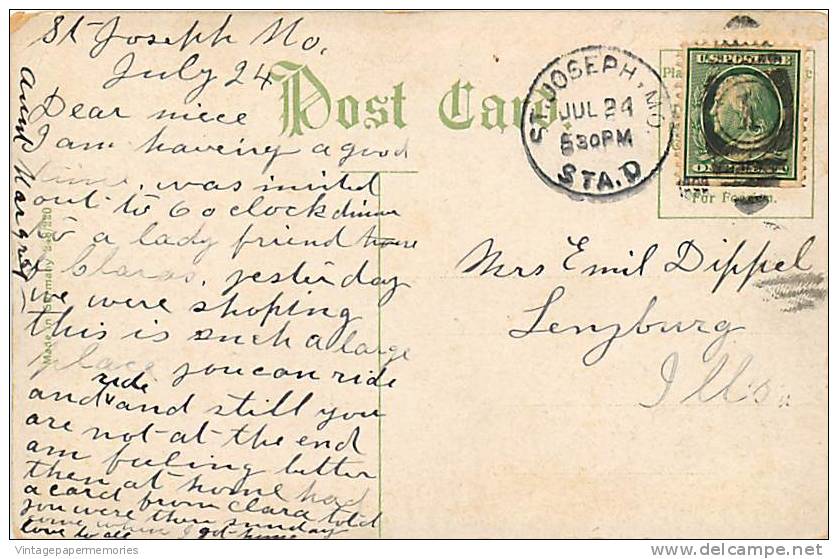 St Joseph Mo.
July 24
Dear niece
I am having a good
time, was invited
out to 6 oclock dinner
to a lady friend house
of Claras. yesterday
we were shoping
this is such a large
place you can ride
and ride and still you
are not at the end
am feeling better
then at home had
a card from Clara told
you were then sunday
come when I got home
love to all
Aunt Margret
Post Card.
Made in Germany
ST. JOSEPH, MO.
JUL 24
530PM
STA. D
U.S. POSTAGE
1
For Foreign.
Mrs Emil Dippel
Lenzburg
Ills.
Vintagepapermemories
©delcampe.net